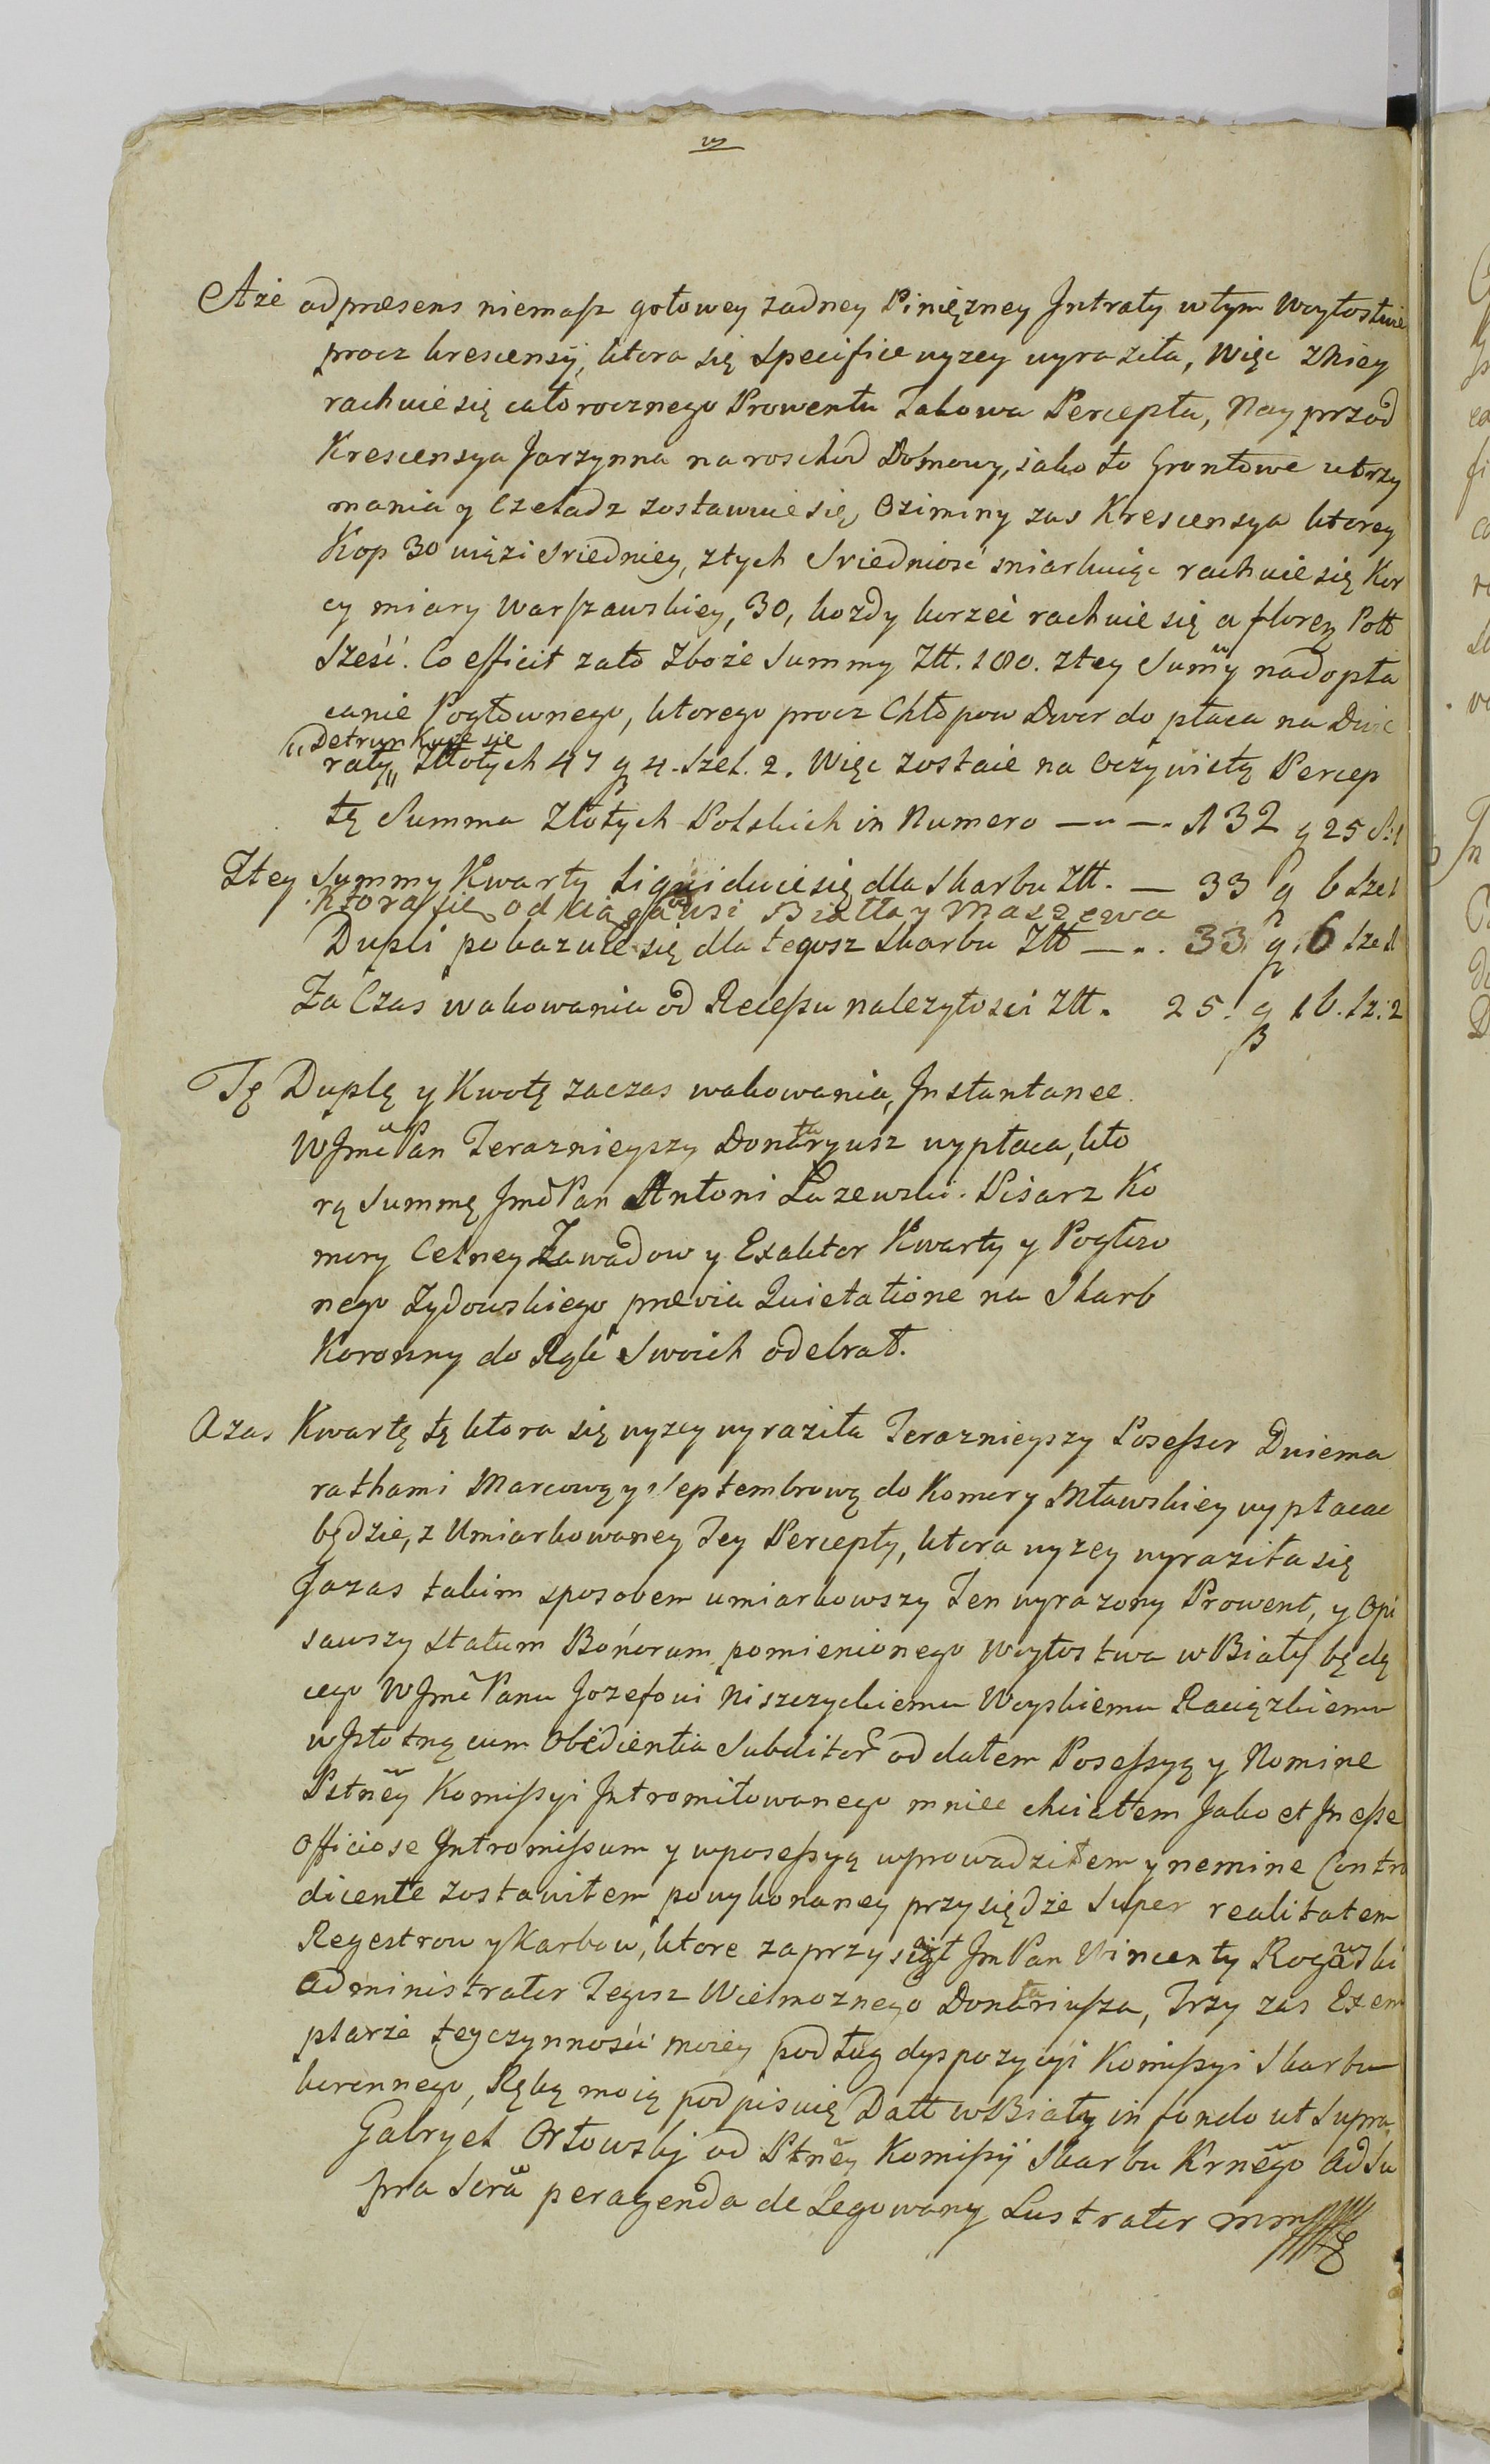 A że ad præsens niemasz gotowey zadney Pinięzney Jntraty w tym Woytostwie
procz krescensyi, ktora się specifice wyzey wyraziła, Więc z Niey
rachuie się całorocznego Prowentu Takowa Percepta, Nay przod
Krescensya Jarzynna na roschod Domowy, iako to Grontowe utrzy
mania y Czeladz zostawuie się, Oziminy zas Krescensya ktorey
Kop 30 więzi sriedniey, z tych sriedniosć miarkuiąc rachuie się Kor
cy miary Warszawskiey, 30, kozdy korzec rachuie się a floren Poll
sześć. Co efficit za to zboże Summy Złł. 180. z tey Sumy nadopła
canie Pogłownego, ktorego procz Chłopow Dwor do płaca na Dwie
„Detrunkuie się
raty„ Złłotych 47 g 4. Szel. 2. Więc zostaie na oczywistą Percep
tę Summa Złotych Polskich in Numero — „ —. 132 g 25 S: 1
Z tey Summy Kwarty Liquiduie się dla Skarbu Złł. — 33 g 6 Szel
Ktora się od ciąga wsi Białła y Maszewa
Dupli pokazuie się dla tegosz Skarbu Złł — . . 33 g. 6 Szel
Za Czas wakowania od Recessu nalezytosci Złł. 25. g 16. Sz: 2
Tę Duplę y Kwotę za czas wakowania, Jnstantanee
WJmć Pan Teraznieyszy Donataryusz wypłaca, kto
rą Summę Jmć Pan Antoni Łazewski. Pisarz Ko
mory Celney Zawadow y Exaktor Kwarty y Pogłow
nego Zydowskiego prævia Quietatione na Skarb
Koronny do Rąk Swoich odebrał.
A zas Kwartę tę ktora się wyzey wyraziła Teraznieyszy Posessor Dwiema
rathami Marcową y Septembrową do Komory Mławskiey wypłacac
będzie, z Umiarkowaney Tey Percepty, ktora wyzey wyraziła się
Ja zas takim sposobem umiarkowszy Ten wyrazony Prowent, y Opi
sawszy statum Bonorum pomienionego Woytostwa w Biały będą
cego WJmć Panu Jozefowi Niszczyckiemu Woyskiemu Raciązkiemu
w Jstotną cum Obedientia Subditor oddałem Posessyą y Nomine
Pstney Komissyi Jntromitowanego mniec chciałem Jako et Jn esse
Officiose Jntromissum y w posessyą wprowadziłem y nemine Contra
dicente zostawiłem po wykonaney przysiędze Super realitatem
Regestrow y Karbow, ktore zaprzysiągł Jm Pan Wincenty Rogawski
Administrator Tegosz Wielmoznego Donatariusza, Trzy zas Exem
plarze tey czynności moiey podług dyspozycyi Komissyi Skarbu
koronnego, Ręką moią podpisuię Datt w Biały in fondo ut Supra
Gabryel Orłowskj od Pstney Komissyi Skarbu Krnego Ad Su
pra Scra peragenda de Legowany Lustrator mmp